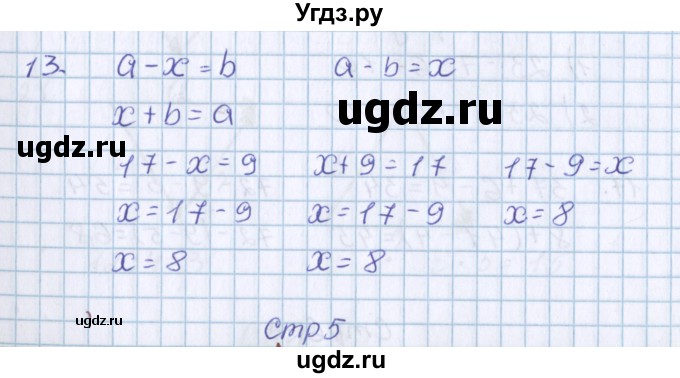 Угдз.ру
13. a - x = b     a - b = x
x + b = a
ugdz.ru
ugdz.ru
17 - x = 9     x + 9 = 17     17 - 9 = x
x = 17 - 9     x = 17 - 9     x = 8
x = 8     x = 8
ugdz
Стр 5
ugdz.ru